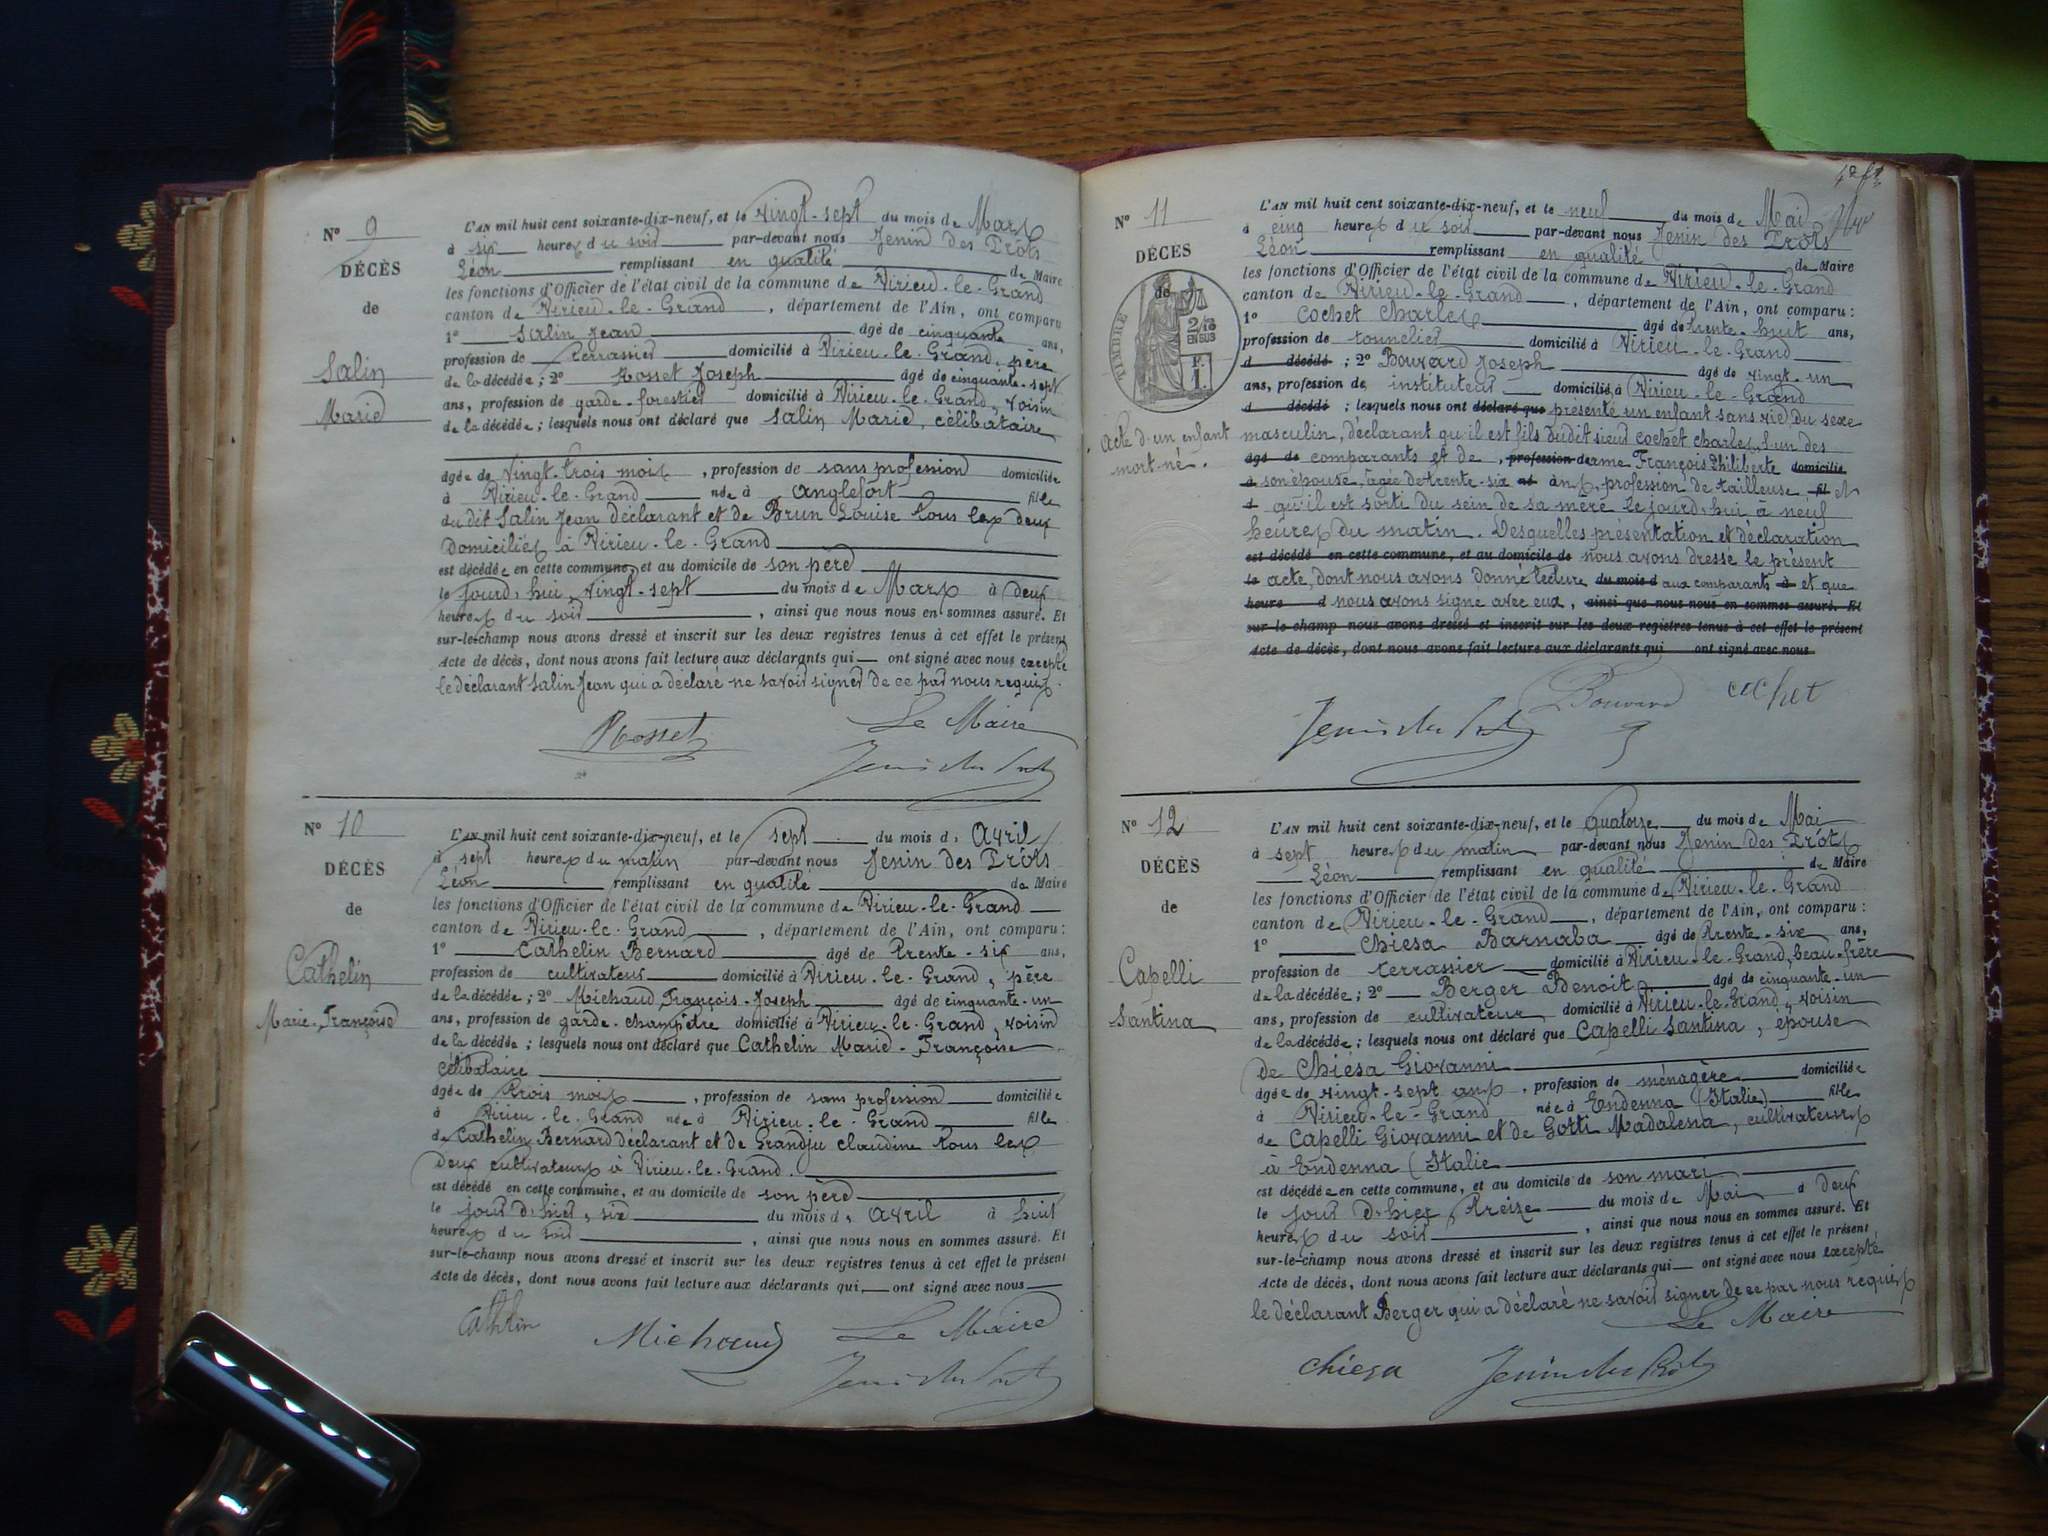 N° 9
DÉCÈS
de
Salin
Marie
L'AN mil huit cent soixante-dix-neuf, et le vingt-sept du mois de Mars
à six heures du soir par-devant nous Jenin des Prôts
Léon remplissant en qualité de Maire
les fonctions d'Officier de l'état civil de la commune de Virieu-le-Grand
canton de Virieu-le-Grand, département de l'Ain, ont comparu
1° Salin Jean âgé de cinquante ans,
profession de terrassier domicilié à Virieu-le-Grand, père
de la décédée; 2° Rosset Joseph âgé de cinquante-sept
ans, profession de garde-forestier domicilié à Virieu-le-Grand, voisin
de la décédée; lesquels nous ont déclaré que Salin Marie, célibataire
âgée de vingt-trois mois, profession de sans profession domiciliée
à Virieu-le-Grand née à Anglefort fille
du dit Salin Jean déclarant et de Brun Louise tous les deux
domiciliés à Virieu-le-Grand
est décédée en cette commune, et au domicile de son père
le jourd'hui vingt-sept du mois de Mars à deux
heures du soir, ainsi que nous nous en sommes assuré. Et
sur-le-champ nous avons dressé et inscrit sur les deux registres tenus à cet effet le présent
Acte de décès, dont nous avons fait lecture aux déclarants qui ont signé avec nous excepté
le déclarant Salin Jean qui a déclaré ne savoir signer de ce par nous requis.
Rosset Le Maire
Jenin des Prôts
N° 10
DÉCÈS
de
Cathelin
Marie-Françoise
L'AN mil huit cent soixante-dix-neuf, et le sept du mois d'Avril
à sept heures du matin par-devant nous Jenin des Prôts
Léon remplissant en qualité de Maire
les fonctions d'Officier de l'état civil de la commune de Virieu-le-Grand
canton de Virieu-le-Grand, département de l'Ain, ont comparu:
1° Cathelin Bernard âgé de trente-six ans,
profession de cultivateur domicilié à Virieu-le-Grand, père
de la décédée; 2° Michaud François-Joseph âgé de cinquante-un
ans, profession de garde-champêtre domicilié à Virieu-le-Grand, voisin
de la décédée; lesquels nous ont déclaré que Cathelin Marie-Françoise
célibataire
âgée de trois mois, profession de sans profession domiciliée
à Virieu-le-Grand née à Virieu-le-Grand fille
de Cathelin Bernard déclarant et de Grandju Claudine tous les
deux cultivateurs à Virieu-le-Grand.
est décédé en cette commune, et au domicile de son père
le jour d'hier, six du mois d'avril à huit
heures du soir, ainsi que nous nous en sommes assuré. Et
sur-le-champ nous avons dressé et inscrit sur les deux registres tenus à cet effet le présent
Acte de décès, dont nous avons fait lecture aux déclarants qui, ont signé avec nous
Cathelin Michaud Le Maire
Jenin des Prôts
N° 11
DÉCÈS
de
TIMBRE
2/10
EN SUS
F.
1.
Acte d'un enfant
mort-né.
L'AN mil huit cent soixante-dix-neuf, et le neuf du mois de Mai
à cinq heures du soir par-devant nous Jenin des Prôts
Léon remplissant en qualité de Maire
les fonctions d'Officier de l'état civil de la commune de Virieu-le-Grand
canton de Virieu-le-Grand, département de l'Ain, ont comparu:
1° Cochet Charles âgé de trente-huit ans,
profession de tonnelier domicilié à Virieu-le-Grand
d décédé; 2° Bouvard Joseph âgé de vingt-un
ans, profession de instituteur domicilié à Virieu-le-Grand
d décédé; lesquels nous ont déclaré que présenté un enfant sans vie, du sexe
masculin, déclarant qu'il est fils dudit sieur Cochet Charles, l'un des
âgé de comparants et de, profession de dame François Philiberte domicilié
à son épouse, âgée de trente-six né ans, profession de tailleuse fil et
d qu'il est sorti du sein de sa mère le jourd'hui à neuf
heures du matin. Desquelles présentation et déclaration
est décédé en cette commune, et au domicile de nous avons dressé le présent
le acte, dont nous avons donné lecture du mois d aux comparants à et que
heure d nous avons signé avec eux, ainsi que nous nous en sommes assuré. Et
sur-le-champ nous avons dressé et inscrit sur les deux registres tenus à cet effet le présent
Acte de décès, dont nous avons fait lecture aux déclarants qui ont signé avec nous
Jenin des Prôts Bouvard Cochet
N° 12
DÉCÈS
de
Capelli
Santina
L'AN mil huit cent soixante-dix-neuf, et le quatorze du mois de Mai
à sept heures du matin par-devant nous Jenin des Prôts
Léon remplissant en qualité de Maire
les fonctions d'Officier de l'état civil de la commune de Virieu-le-Grand
canton de Virieu-le-Grand, département de l'Ain, ont comparu:
1° Chiesa Barnaba âgé de trente-six ans,
profession de terrassier domicilié à Virieu-le-Grand, beau-frère
de la décédée; 2° Berger Benoit âgé de cinquante-un
ans, profession de cultivateur domicilié à Virieu-le-Grand, voisin
de la décédée; lesquels nous ont déclaré que Capelli Santina, épouse
de Chiésa Giovanni
âgée de vingt-sept ans, profession de ménagère domiciliée
à Virieu-le-Grand née à Endenna (Italie) fille
de Capelli Giovanni et de Gotti Madalena, cultivateurs
à Endenna (Italie
est décédée en cette commune, et au domicile de son mari
le jour d'hier, treize du mois de Mai à deux
heures du soir, ainsi que nous nous en sommes assuré. Et
sur-le-champ nous avons dressé et inscrit sur les deux registres tenus à cet effet le présent
Acte de décès, dont nous avons fait lecture aux déclarants qui ont signé avec nous excepté
le déclarant Berger qui a déclaré ne savoir signer de ce par nous requis
Le Maire
Chiesa Jenin des Prôts